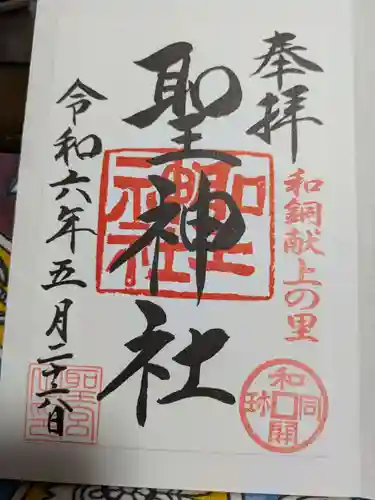 奉拝
和銅献上の里
和同開珎
聖神社
聖神社
令和六年五月二十八日